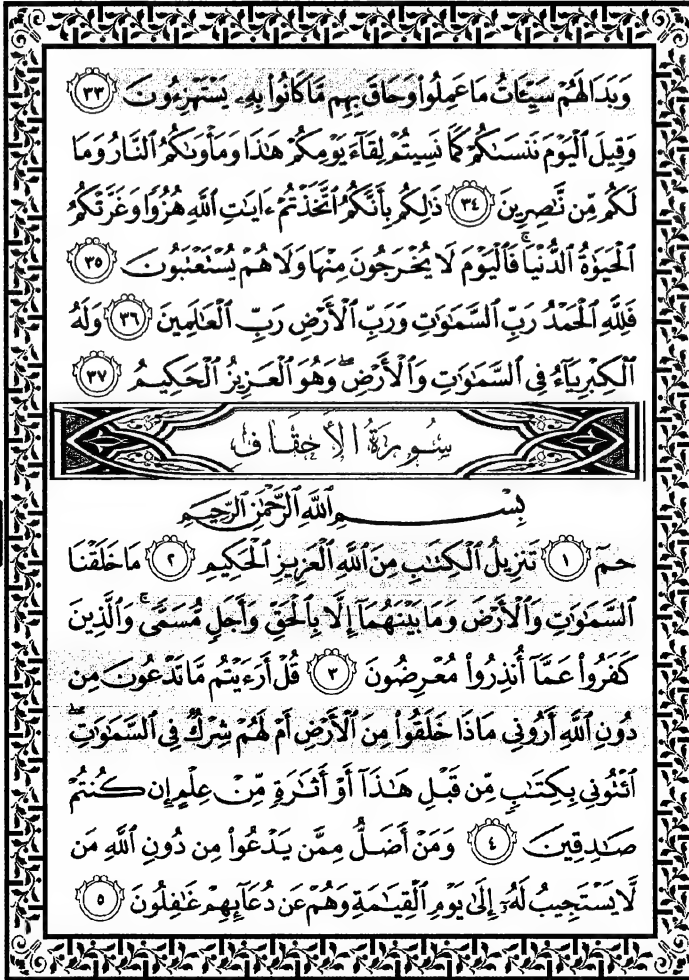 وَبَدَا لَهُمْ سَيِّـَٔاتُ مَا عَمِلُوا۟ وَحَاقَ بِهِم مَّا كَانُوا۟ بِهِۦ يَسْتَهْزِءُونَ ٣٣
وَقِيلَ ٱلْيَوْمَ نَنسَىٰكُمْ كَمَا نَسِيتُمْ لِقَآءَ يَوْمِكُمْ هَٰذَا وَمَأْوَىٰكُمُ ٱلنَّارُ وَمَا
لَكُم مِّن نَّٰصِرِينَ ٣٤ ذَٰلِكُم بِأَنَّكُمُ ٱتَّخَذْتُمْ ءَايَٰتِ ٱللَّهِ هُزُوًا وَغَرَّتْكُمُ
ٱلْحَيَوٰةُ ٱلدُّنْيَا ۚ فَٱلْيَوْمَ لَا يُخْرَجُونَ مِنْهَا وَلَا هُمْ يُسْتَعْتَبُونَ ٣٥
فَلِلَّهِ ٱلْحَمْدُ رَبِّ ٱلسَّمَٰوَٰتِ وَرَبِّ ٱلْأَرْضِ رَبِّ ٱلْعَٰلَمِينَ ٣٦ وَلَهُ
ٱلْكِبْرِيَآءُ فِى ٱلسَّمَٰوَٰتِ وَٱلْأَرْضِ ۖ وَهُوَ ٱلْعَزِيزُ ٱلْحَكِيمُ ٣٧
سُورَةُ الأَحْقَافِ
بِسْمِ ٱللَّهِ ٱلرَّحْمَٰنِ ٱلرَّحِيمِ
حمٓ ١ تَنزِيلُ ٱلْكِتَٰبِ مِنَ ٱللَّهِ ٱلْعَزِيزِ ٱلْحَكِيمِ ٢ مَا خَلَقْنَا
ٱلسَّمَٰوَٰتِ وَٱلْأَرْضَ وَمَا بَيْنَهُمَآ إِلَّا بِٱلْحَقِّ وَأَجَلٍ مُّسَمًّى ۚ وَٱلَّذِينَ
كَفَرُوا۟ عَمَّآ أُنذِرُوا۟ مُعْرِضُونَ ٣ قُلْ أَرَءَيْتُم مَّا تَدْعُونَ مِن
دُونِ ٱللَّهِ أَرُونِى مَاذَا خَلَقُوا۟ مِنَ ٱلْأَرْضِ أَمْ لَهُمْ شِرْكٌ فِى ٱلسَّمَٰوَٰتِ ۖ
ٱئْتُونِى بِكِتَٰبٍ مِّن قَبْلِ هَٰذَآ أَوْ أَثَٰرَةٍ مِّنْ عِلْمٍ إِن كُنتُمْ
صَٰدِقِينَ ٤ وَمَنْ أَضَلُّ مِمَّن يَدْعُوا۟ مِن دُونِ ٱللَّهِ مَن
لَّا يَسْتَجِيبُ لَهُۥٓ إِلَىٰ يَوْمِ ٱلْقِيَٰمَةِ وَهُمْ عَن دُعَآئِهِمْ غَٰفِلُونَ ٥